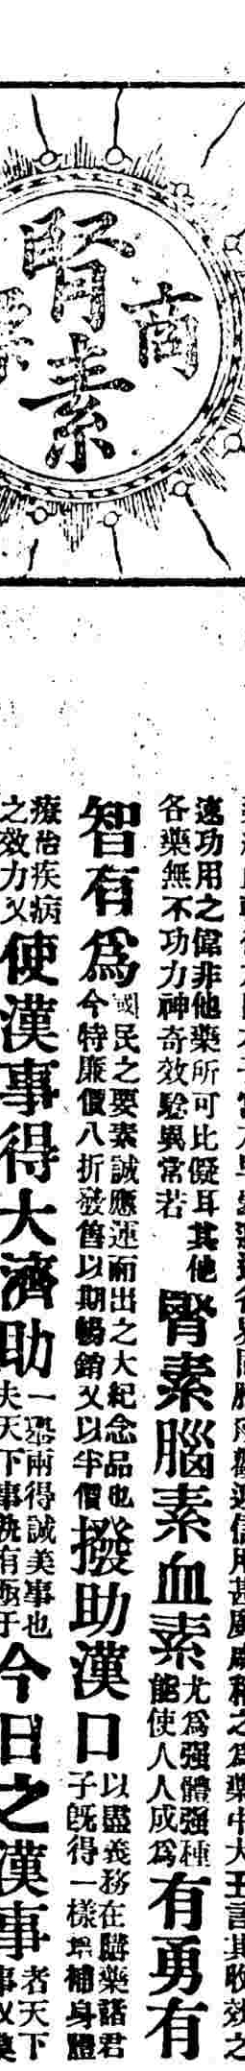 腎素
商
速功用之偉非他藥所可比儗耳其他
各藥無不功力神奇效驗異常若
腎素腦素血素
尤爲强體强種
能使人人成爲
有勇有
智有爲
國民之要素誠應運而出之大紀念品也
今特廉價八折發售以期暢銷又以半價
撥助漢口
以盡義務在購藥諸君
子旣得一樣 補身體
療治疾病
之效力又
使漢事得大濟助
一舉兩得誠美事也
夫天下事孰有 于
今日之漢事
者天下